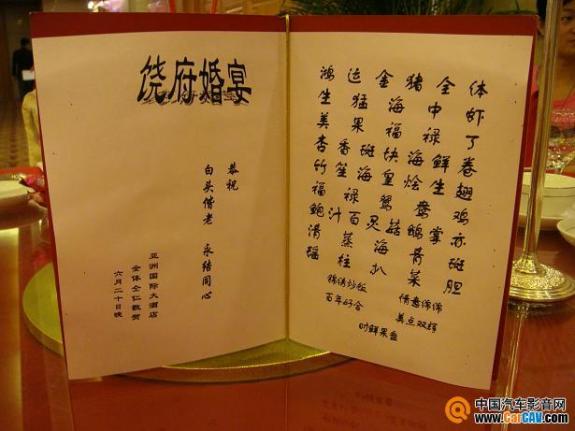 饶府婚宴
恭祝
白头偕老 永结同心
亚洲国际大酒店
全体仝仁敬贺
六月二十日晚
鸿运金猪全体
生猛海中虾
美果福禄丁
杏香斑块海鲜卷
竹笙海皇烩生翅
福禄鸳鸯鸡
鲍汁百灵菇鹅掌
清蒸海青斑
瑶柱扒菜胆
锦绣炒饭
百年好合
情意绵绵
美点双辉
时鲜果盘
中国汽车影音网
www.CarCAV.com